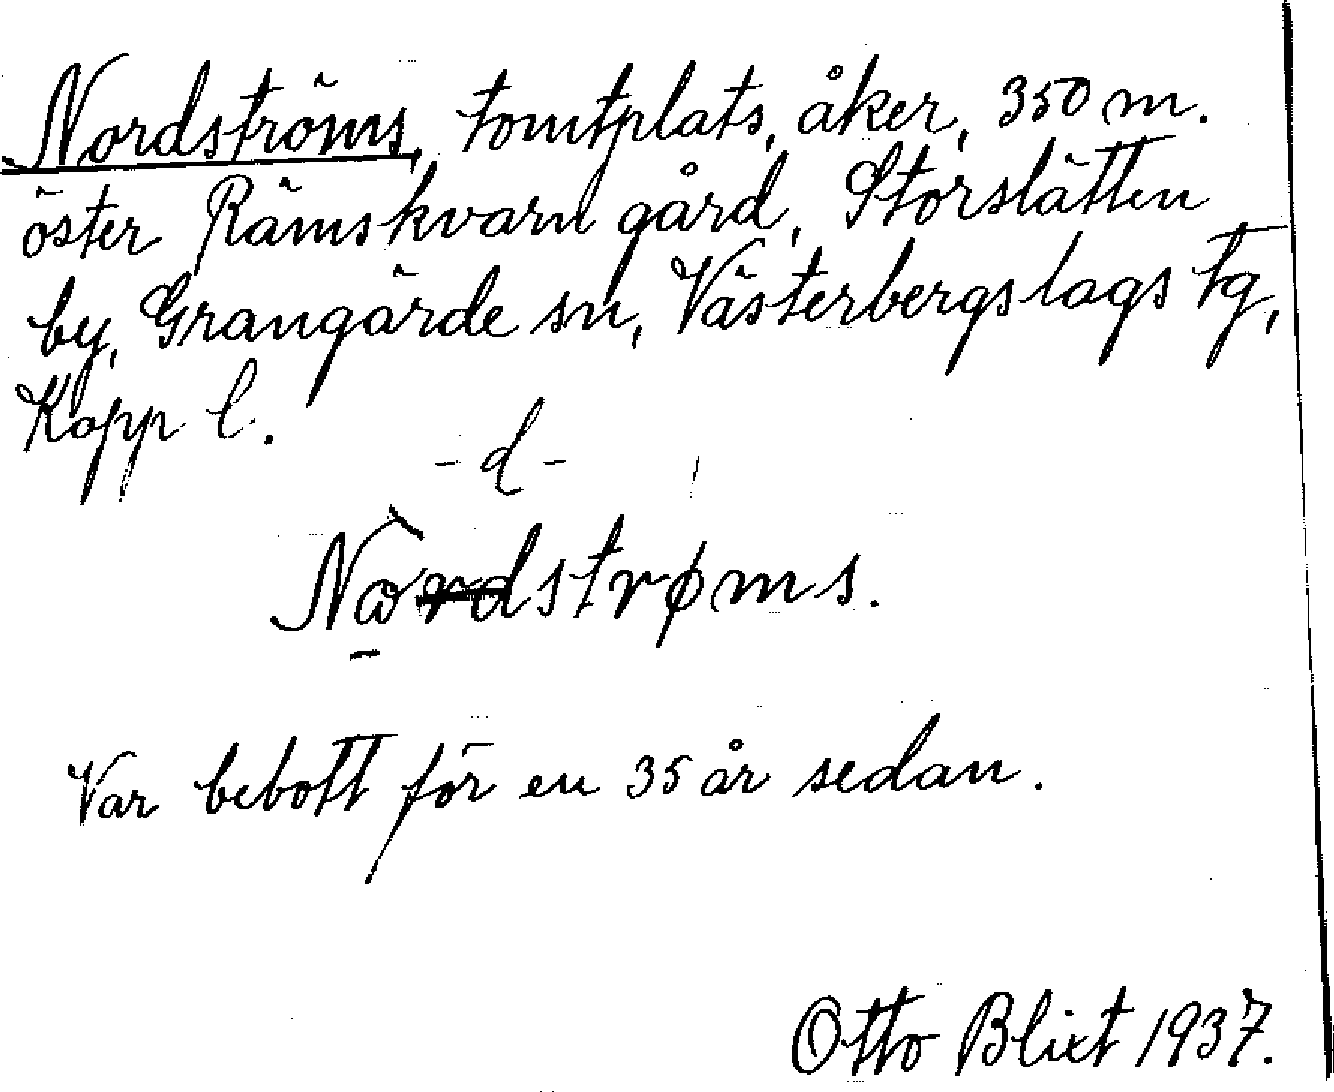 Nordströms, tomtplats, åker, 350 m.
öster Rämskvarn gård, Storslätten
by, Grangärde sn, Västerbergslags tg,
Kopp l.
- d -
Nordstrøms.
Var bebott för en 35 år sedan.
Otto Blixt 1937.